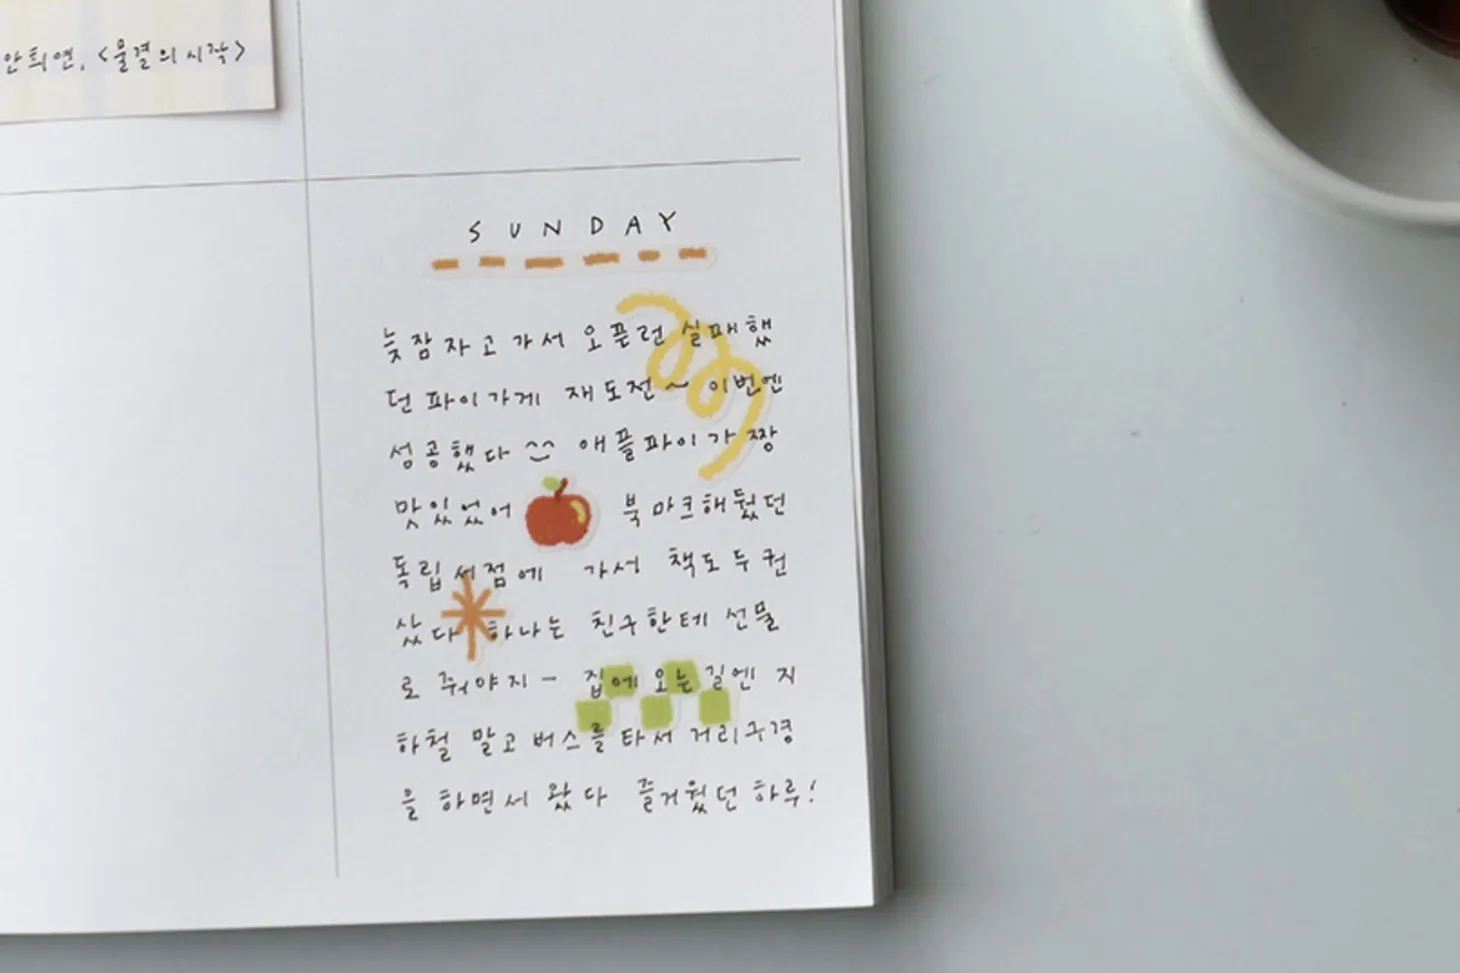 안희연, <물결의 시작>
SUNDAY
늦잠자고 가서 오픈런 실패했
던 파이가게 재도전~ 이번엔
성공했다 ^^ 애플파이가 짱
맛있었어 북마크해뒀던
독립서점에 가서 책도 두권
샀다 하나는 친구한테 선물
로 줘야지- 집에 오는 길엔 지
하철 말고 버스를 타서 거리구경
을 하면서 왔다 즐거웠던 하루!